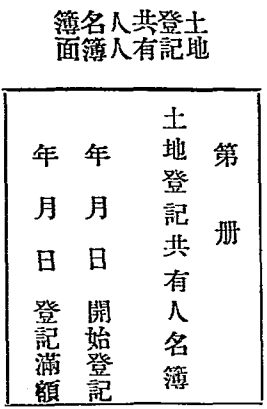 土地登記共有人人名簿簿面
第 冊
土地登記共有人名簿
年 月 日 開始登記
年 月 日 登記滿額